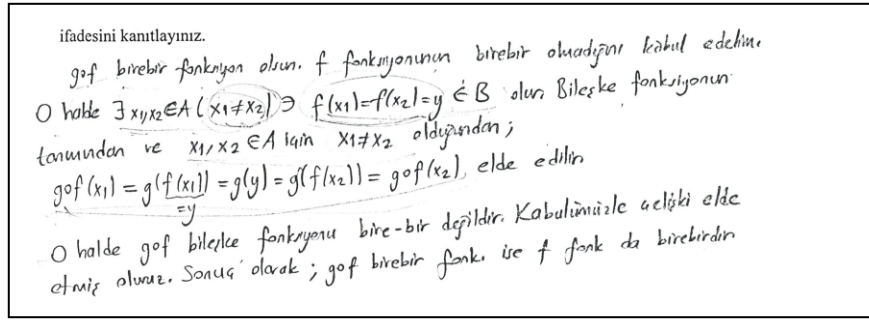 ifadesini kanıtlayınız.
gof birebir fonksiyon olsun. f fonksiyonunun birebir olmadığını kabul edelim.
O halde ∃ x₁,x₂∈A (x₁≠x₂) ∋ f(x₁)=f(x₂)=y ∈ B olur. Bileşke fonksiyonun
tanımından ve x₁,x₂ ∈A için x₁≠x₂ olduğundan;
gof(x₁) = g(f(x₁)) = g(y) = g(f(x₂)) = gof(x₂), elde edilir
=y
O halde gof bileşke fonksiyonu bire-bir değildir. Kabulümüzle çelişki elde
etmiş oluruz. Sonuç olarak; gof birebir fonk. ise f fonk da birebirdir